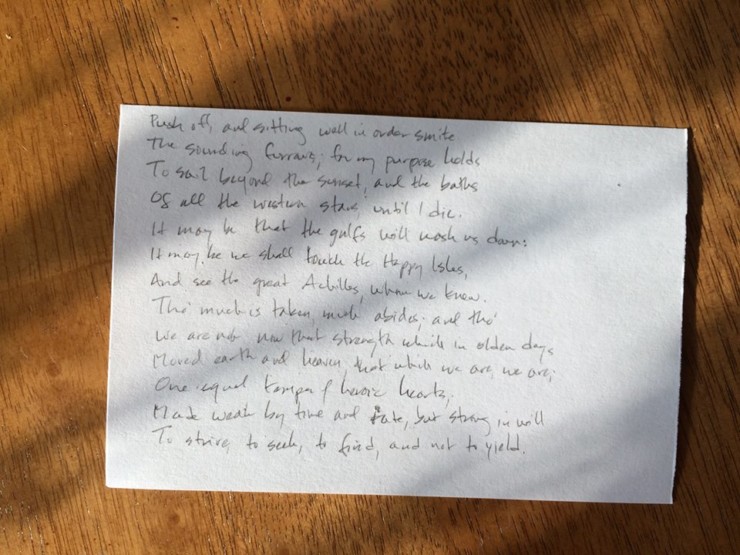 Push off, and sitting well in order smite
The sounding furrows; for my purpose holds
To sail beyond the sunset, and the baths
Of all the western stars, until I die.
It may be that the gulfs will wash us down:
It may be we shall touch the Happy Isles,
And see the great Achilles, whom we knew.
Tho' much is taken, much abides; and tho'
We are not now that strength which in olden days
Moved earth and heaven, that which we are, we are;
One equal temper of heroic hearts,
Made weak by time and fate, but strong in will
To strive, to seek, to find, and not to yield.